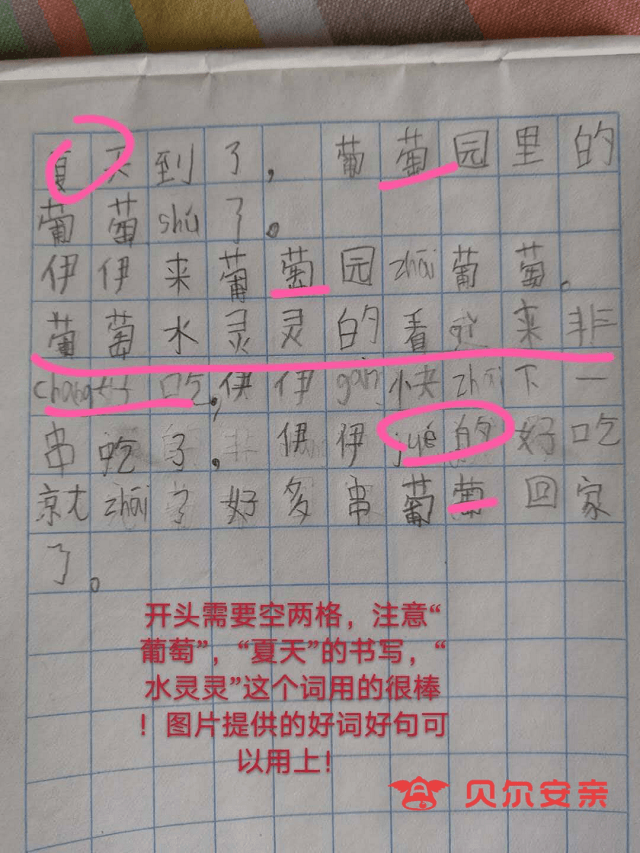 夏天到了，葡萄园里的
葡萄shú了。
伊伊来葡萄园zhāi葡萄.
葡萄水灵灵的看qǐ来非
cháng好吃,伊伊gǎn快zhāi下一
串吃了，伊伊jué的好吃
就zhāi了好多串葡萄回家
了。
开头需要空两格，注意“
葡萄”，“夏天”的书写，“
水灵灵”这个词用的很棒
！图片提供的好词好句可
以用上！
贝尔安亲